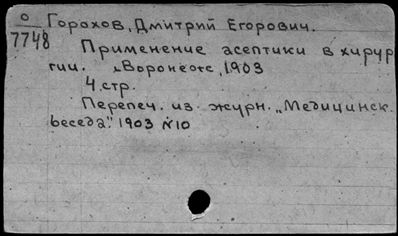 О Горохов, Дмитрий Егорович.
7748
Применение асептики в хирур
гии. Воронеж, 1903
4 стр.
Перепеч. из журн. „Медицинск.
беседа." 1903 №10